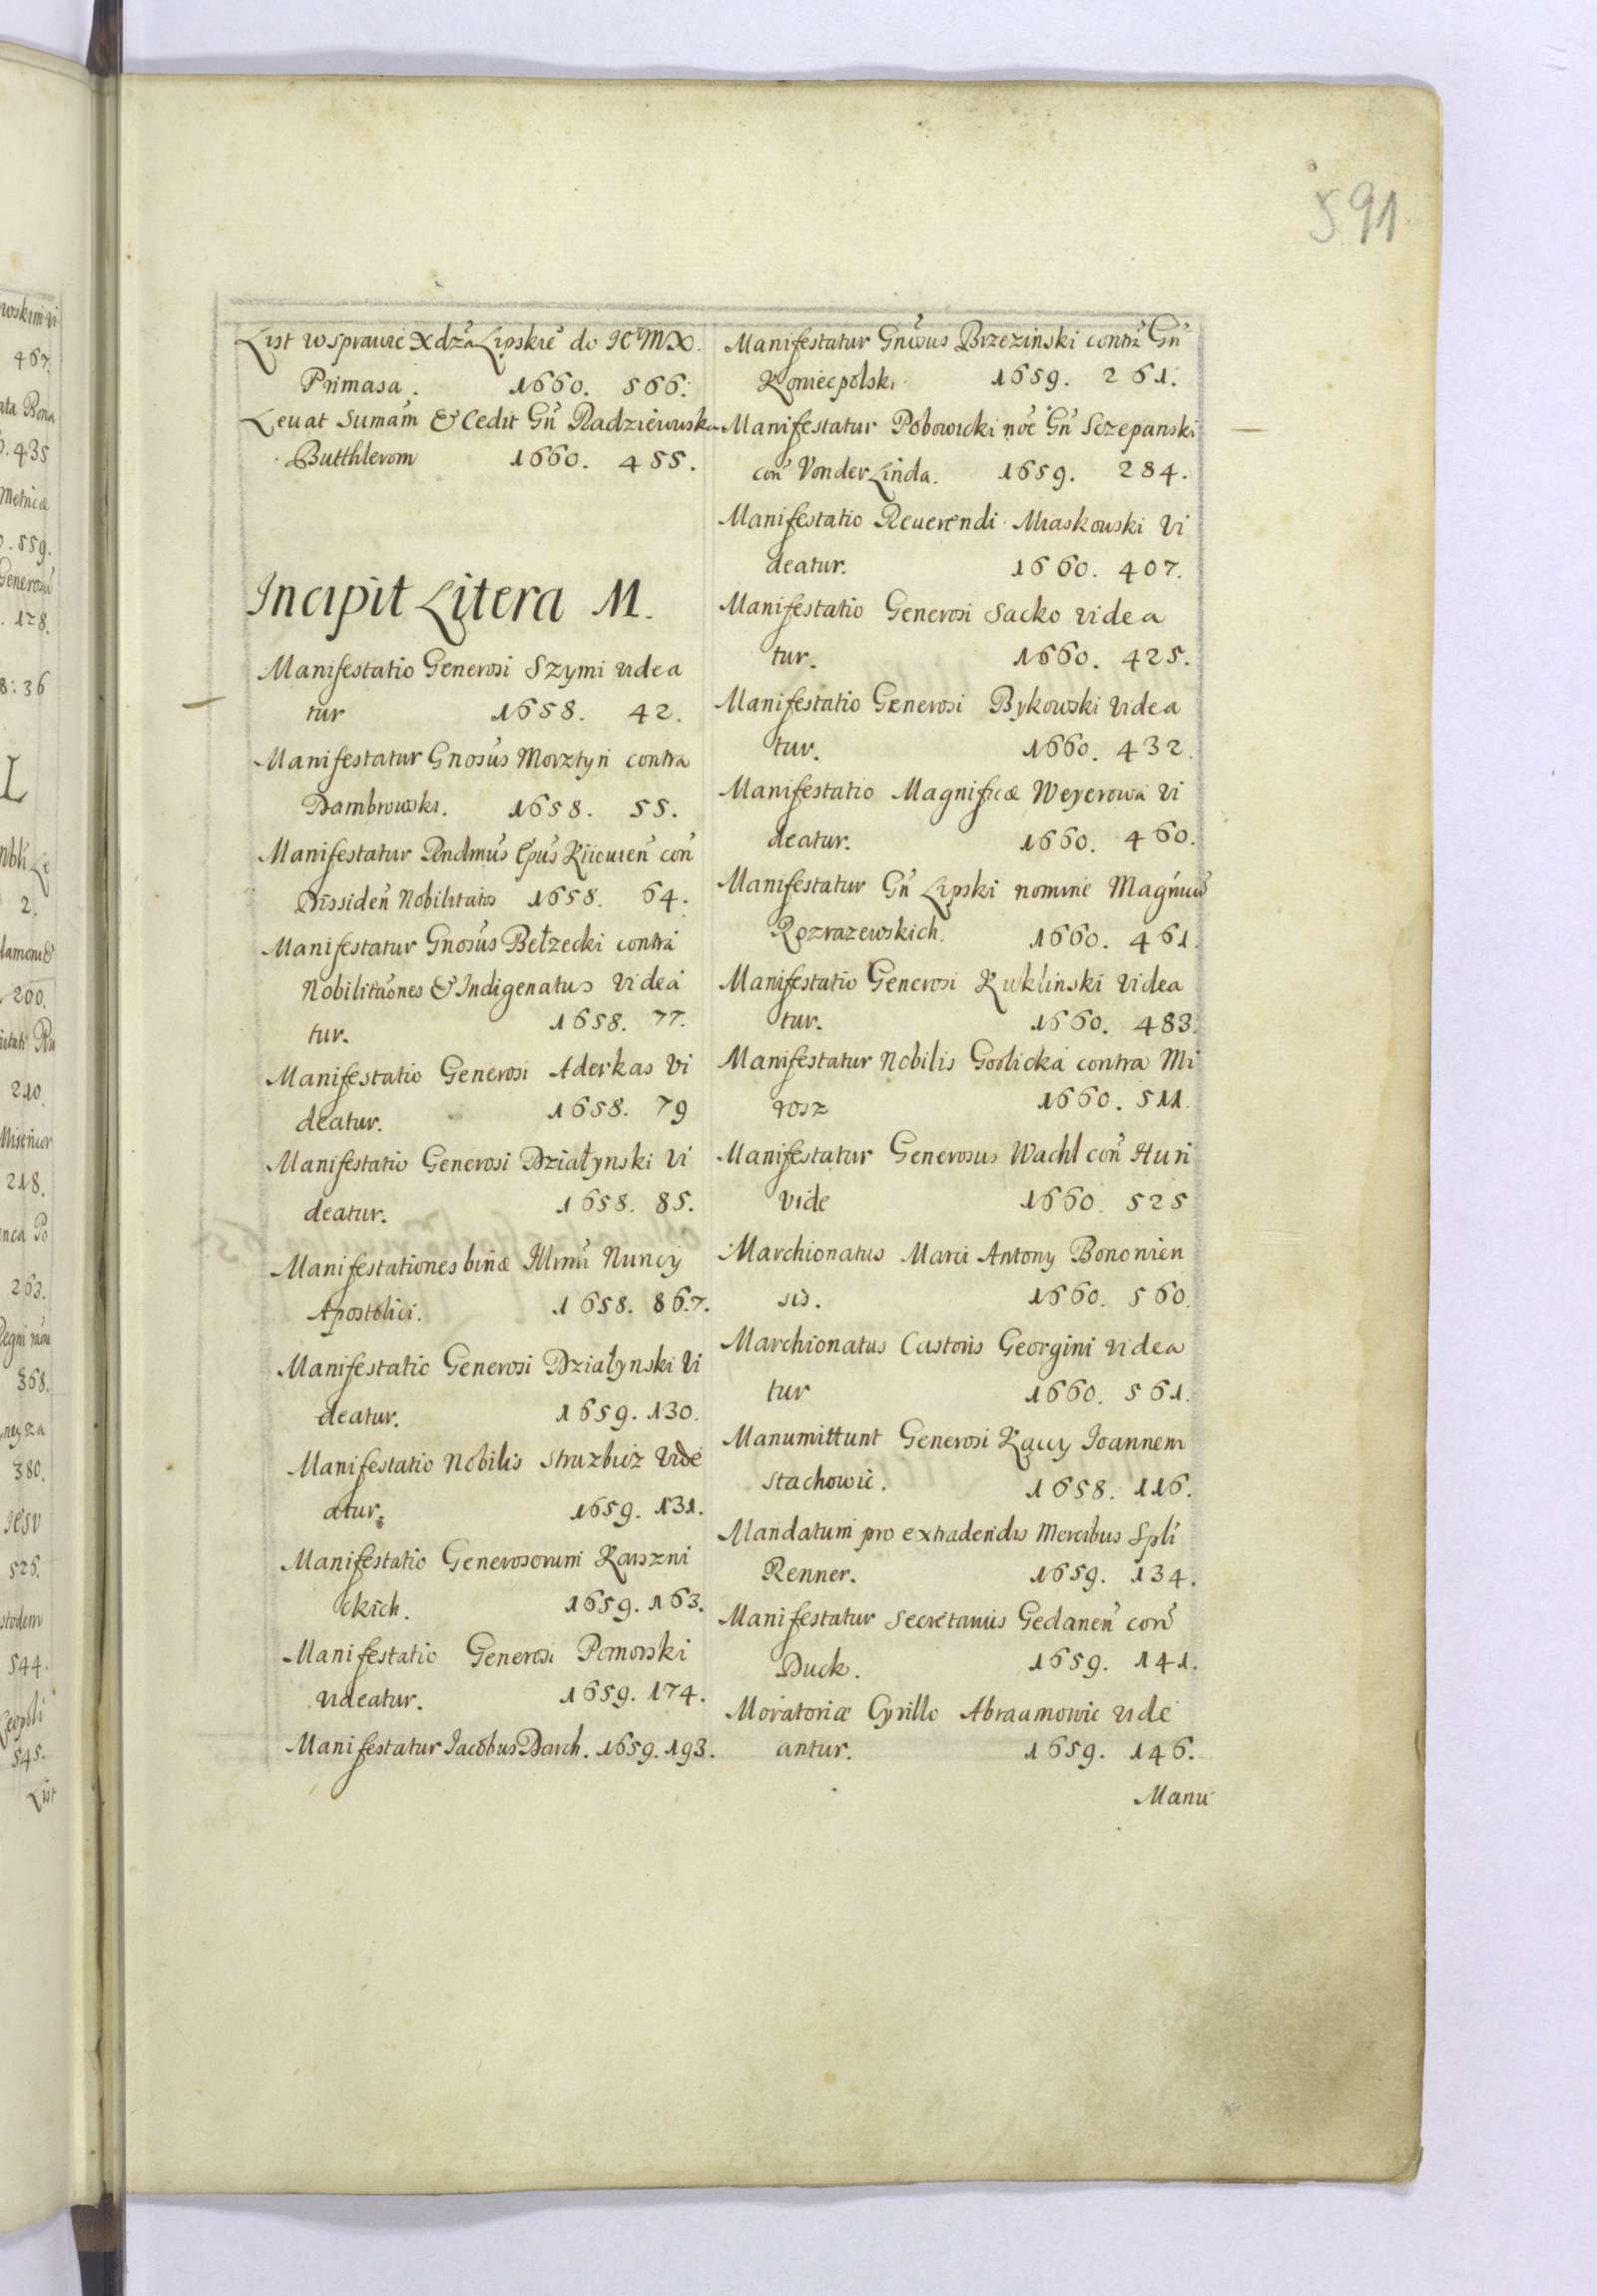 591
List w sprawie Xdza Lipskie do JEo M X.
Primasa. 1660. 566.
Leuat Sumam & Cedit Gn Radziewuska
Butthlerom 1660. 455.
Incipit Litera M.
Manifestatio Generosi Szymi videa
tur 1658. 42.
Manifestatur Gnosus Morztyn contra
Dambrowski. 1658. 55.
Manifestatur Rndmus Epus Kiiouien con
Dissiden Nobilitatis 1658. 64.
Manifestatur Gnosus Bełzecki contra
Nobilitaones & Indigenatus videa
tur. 1658. 77.
Manifestatio Generosi Aderkas vi
deatur. 1658. 79
Manifestatio Generosi Działynski vi
deatur. 1658. 85.
Manifestationes binæ Illrmi Nuncij
Apostolici. 1658. 86.7.
Manifestatio Generosi Działynski vi
deatur. 1659. 130.
Manifestatio Nobilis Struzbicz vide
atur. 1659. 131.
Manifestatio Generosorum Karszni
ckich. 1659. 163.
Manifestatio Generosi Pomorski
videatur. 1659. 174.
Manifestatur Jacobus Darch. 1659. 193.
Manifestatur Gnosus Brzezinski contra Gn
Koniecpolski 1659. 261.
Manifestatur Pobowicki noe Gn Sczepanski
con Vonder Linda. 1659. 284.
Manifestatio Reuerendi Miaskowski vi
deatur. 1660. 407.
Manifestatio Generosi Sacko videa
tur. 1660. 425.
Manifestatio Generosi Bykowski videa
tur. 1660. 432.
Manifestatio Magnificæ Weyerowa vi
deatur. 1660. 460.
Manifestatur Gn Lipski nomine Magnico
Rozrazewskich. 1660. 461.
Manifestatio Generosi Kuklinski videa
tur. 1660. 483.
Manifestatur Nobilis Gorlicka contra Mi
rosz 1660. 511.
Manifestatur Generosus Wachl con Huri
vide 1660. 525
Marchionatus Marci Antony Bononien
sis. 1660. 560.
Marchionatus Castoris Georgini videa
tur 1660. 561.
Manumittunt Generosi Kawy Joannem
Stachowic. 1658. 116.
Mandatum pro extradendis Mercibus Spli
Renner. 1659. 134.
Manifestatur Secretarius Gedanen con
Duck. 1659. 141.
Moratoriæ Cyrillo Abraamowic vide
antur. 1659. 146.
Manu